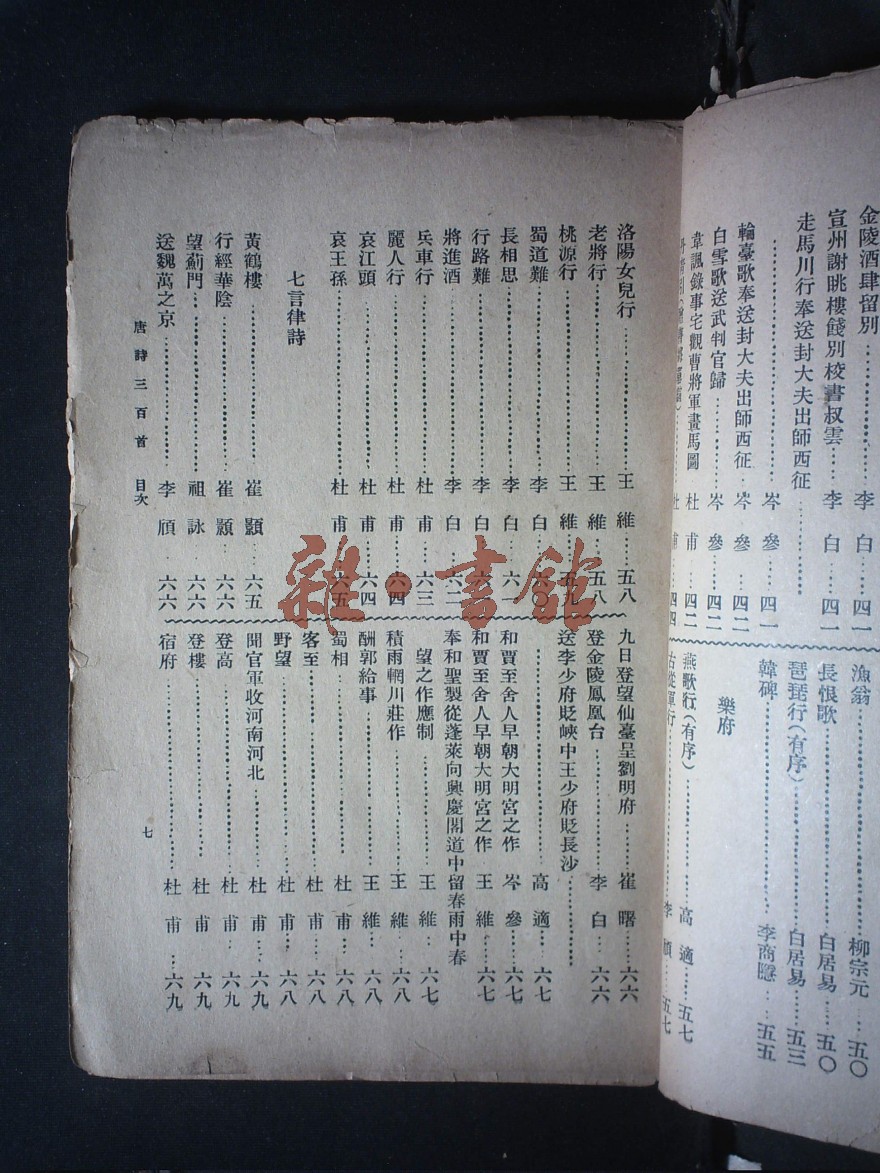 金陵酒肆留別……李白……四一
宣州謝眺樓餞別校書叔雲……李白……四一
走馬川行奉送封大夫出師西征……
……岑參……四一
輪臺歌奉送封大夫出師西征……岑參……四二
白雪歌送武判官歸……岑參……四二
韋諷錄事宅觀曹將軍畫馬圖 杜甫……四二
杜甫……四四
漁翁……柳宗元……五〇
長恨歌……白居易……五〇
琵琶行(有序)……白居易……五三
韓碑……李商隱……五五
樂府
燕歌行(有序)……高適……五七
古從軍行……李頎……五七
洛陽女兒行……王維……五八
老將行……王維……五八
桃源行……王維……五九
蜀道難……李白……六〇
長相思……李白……六一
行路難……李白……六一
將進酒……李白……六二
兵車行……杜甫……六三
麗人行……杜甫……六四
哀江頭……杜甫……六四
哀王孫……杜甫……六五
七言律詩
黃鶴樓……崔顥……六五
行經華陰……崔顥……六六
望薊門……祖詠……六六
送魏萬之京……李頎……六六
九日登望仙臺呈劉明府……崔曙……六六
登金陵鳳凰台……李白……六六
送李少府貶峽中王少府貶長沙……
……高適……六七
和賈至舍人早朝大明宮之作 岑參……六七
和賈至舍人早朝大明宮之作 王維……六七
奉和聖製從蓬萊向興慶閣道中留春雨中春
望之作應制……王維……六七
積雨輞川莊作……王維……六八
酬郭給事……王維……六八
蜀相……杜甫……六八
客至……杜甫……六八
野望……杜甫……六八
聞官軍收河南河北……杜甫……六九
登高……杜甫……六九
登樓……杜甫……六九
宿府……杜甫……六九
唐詩三百首 目次
七
雜·書館